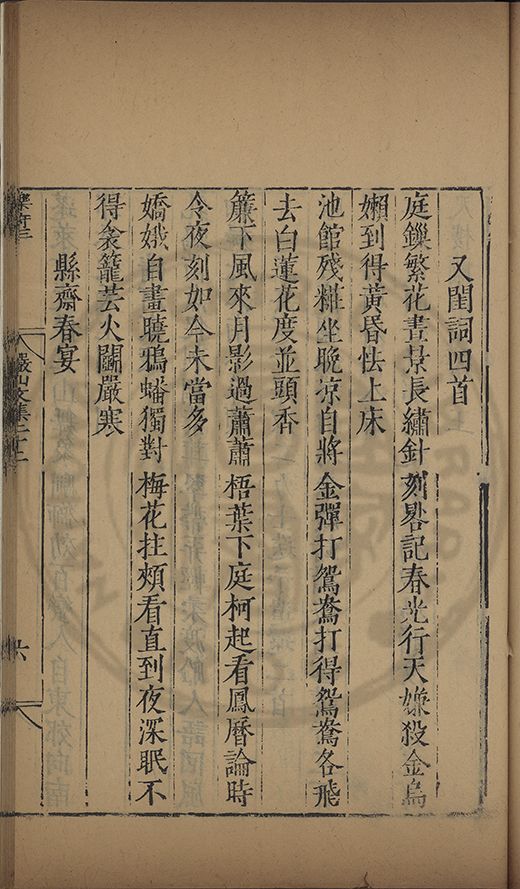 又閨詞四首
庭鏁繁花晝景長繡針刻晷記春光行天嫌殺金烏
嬾到得黃昏怯上床
池館殘糚坐晩凉自將金彈打鴛鴦打得鴛鴦各飛
去白蓮花度並頭香
簾下風來月影過蕭蕭梧葉下庭柯起看鳳曆論時
令夜刻如今未當多
嬌娥自畫曉鴉蟠獨對梅花拄頰看直到夜深眠不
得衾籠芸火鬭嚴寒
縣齋春宴
儼山文集二十二
六